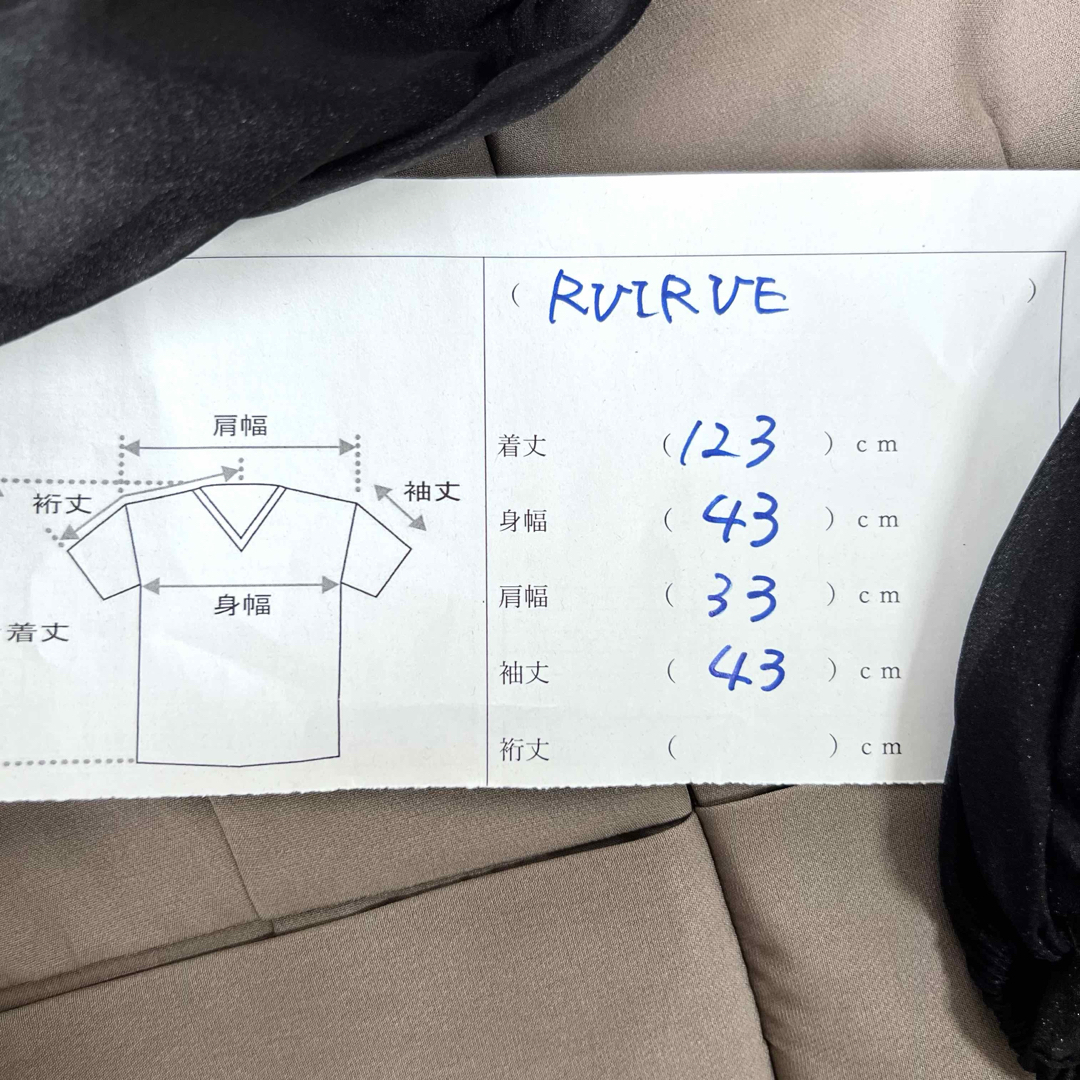 肩幅
裄丈
袖丈
身幅
着丈
( RVIRVE )
着丈 ( 123 ) cm
身幅 ( 43 ) cm
肩幅 ( 33 ) cm
袖丈 ( 43 ) cm
裄丈 ( ) cm